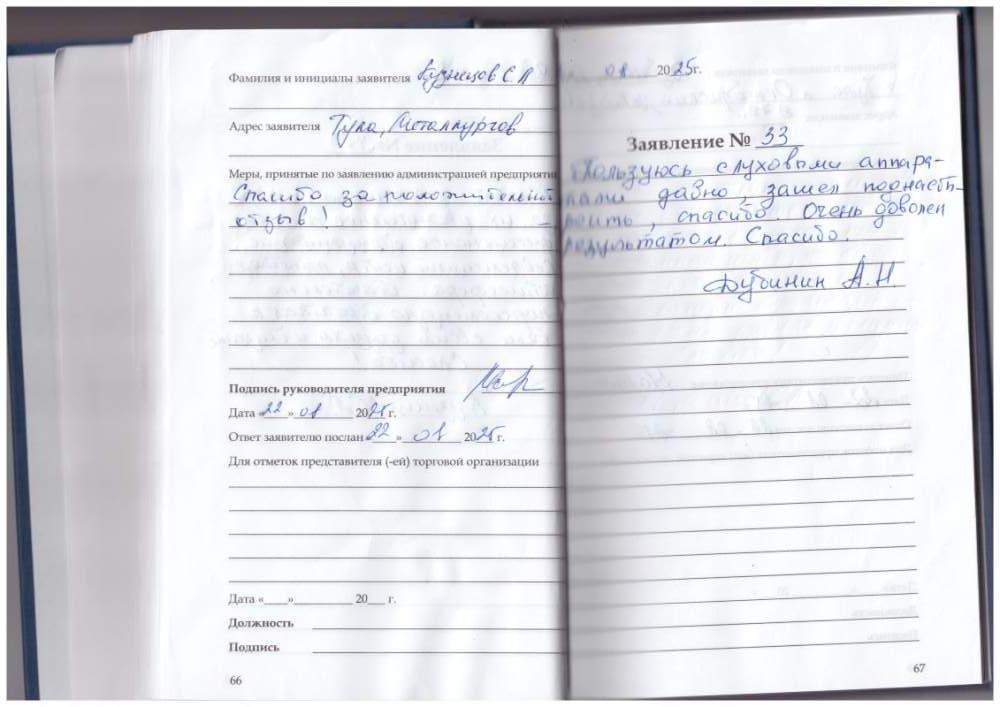 Фамилия и инициалы заявителя Кузнецов С.А
Адрес заявителя Тула, Металлургов
Меры, принятые по заявлению администрацией предприяти
Спасибо за положительный
отзыв!
Подпись руководителя предприятия
Дата «22» 01 2025г.
Ответ заявителю послан «22» 01 2025г.
Для отметок представителя (-ей) торговой организации
Дата «____»__________ 20___ г.
Должность
Подпись
66
01 2025г.
Заявление № 33
Пользуюсь слуховыми аппара-
тами давно, зашел поднаст-
роить, спасибо. Очень доволен
результатом. Спасибо.
Дубинин А.Н
67